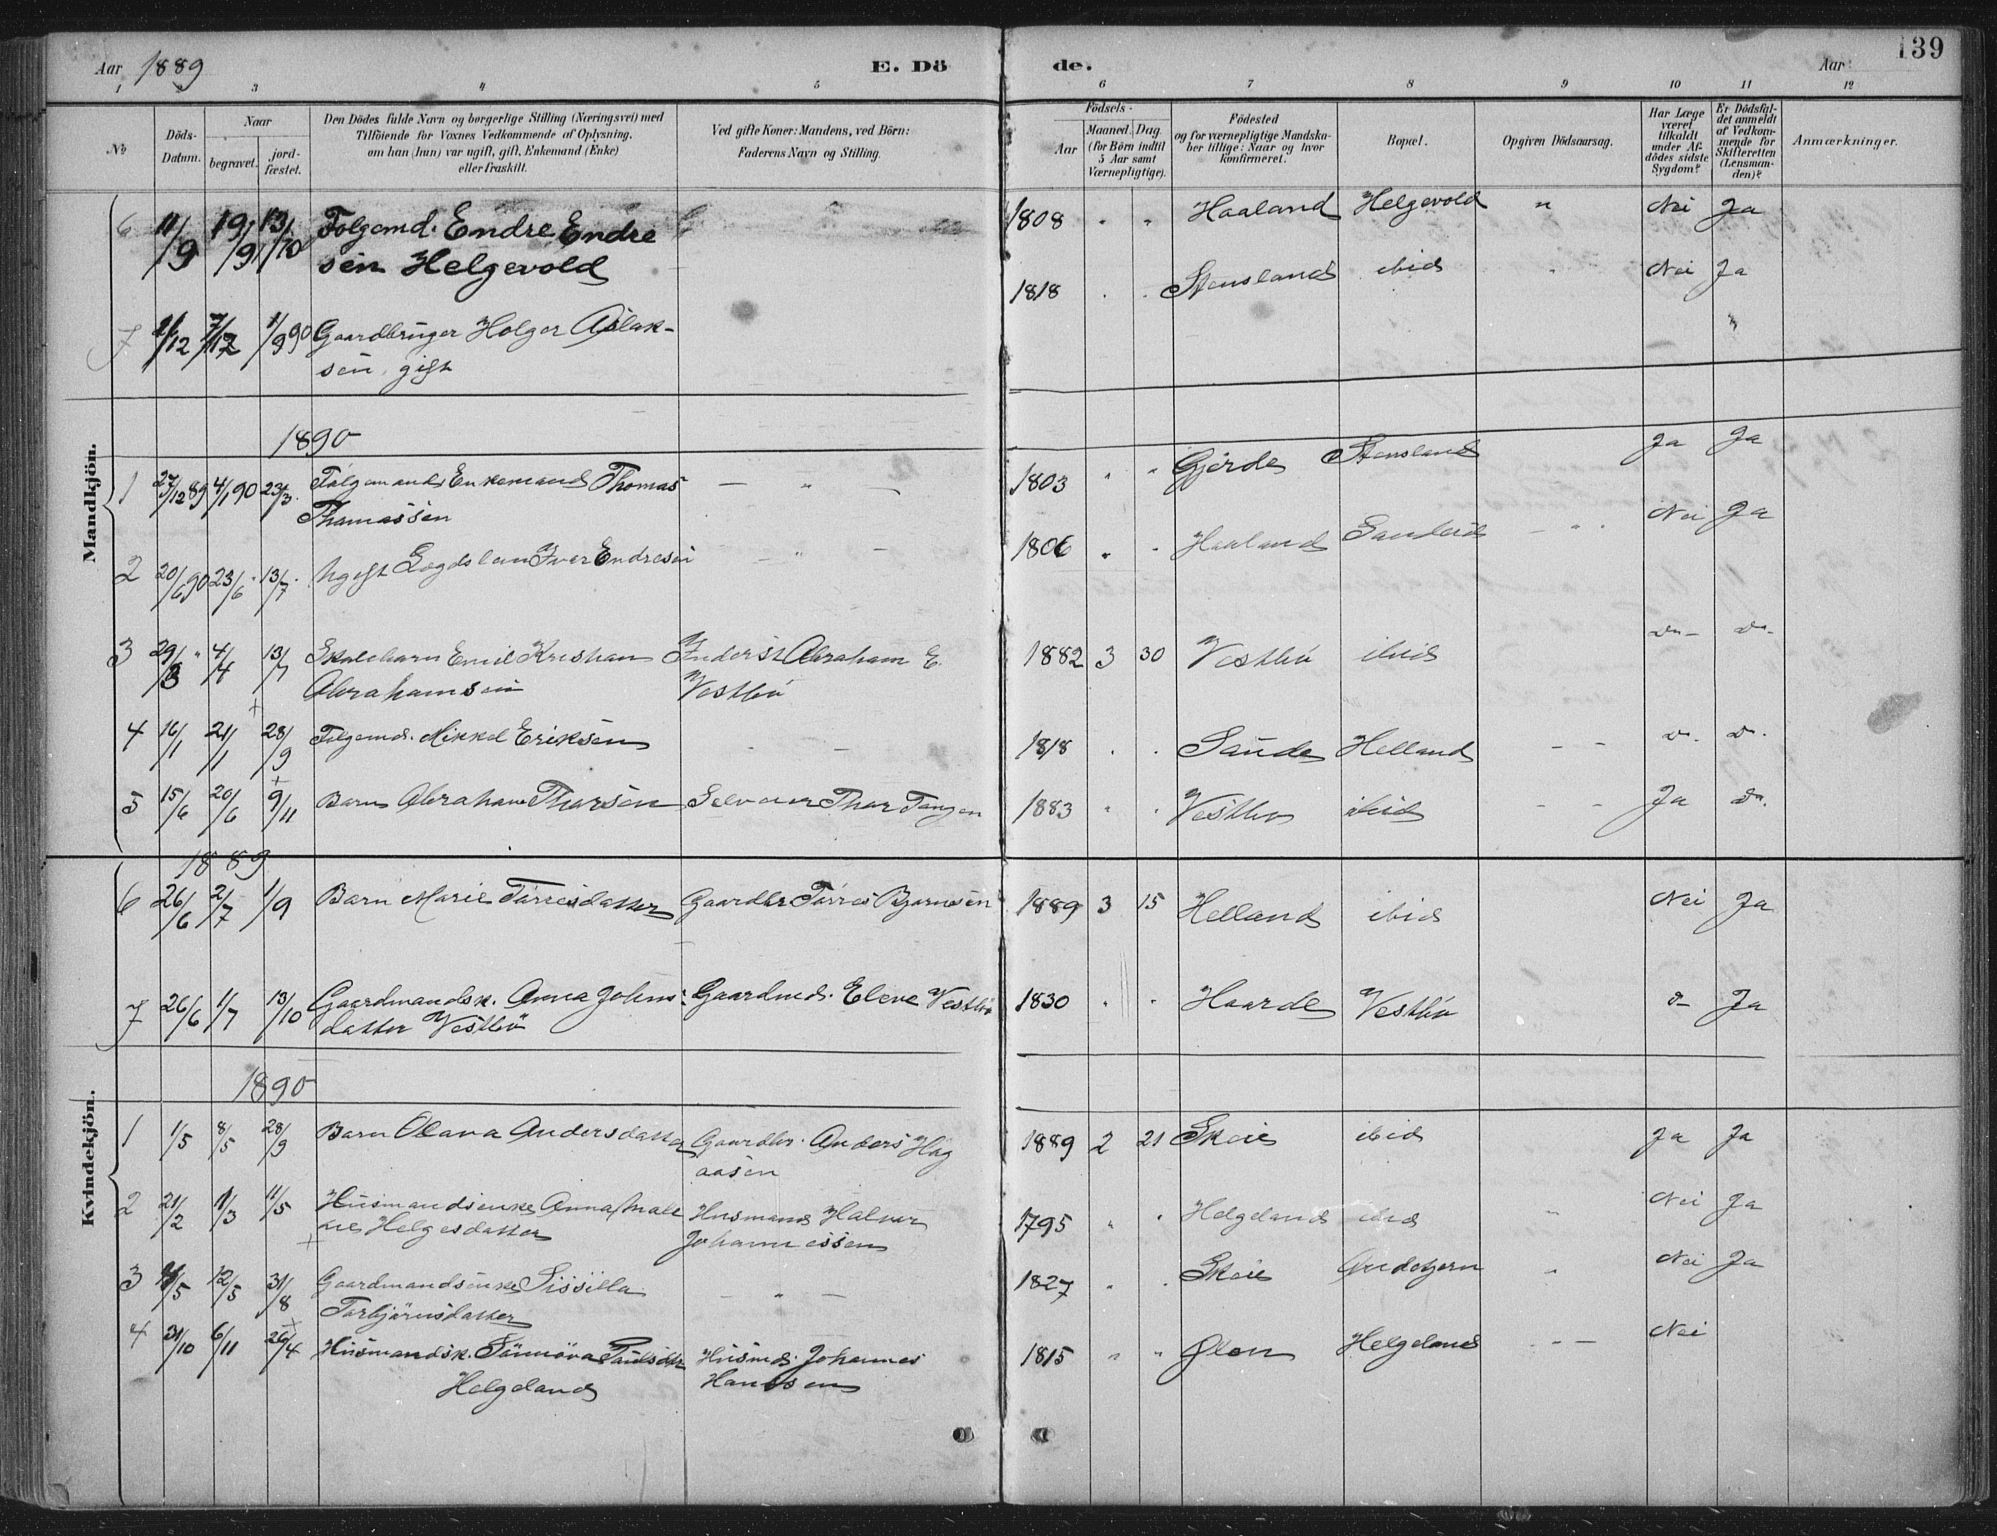 Aar 1889 E. Dö de. Aar 139
1 3 4 5 6 7 8 9 10 11 12
No
Döds-Datum.
Naar
begravet.
jord-fæstet.
Den Dödes fulde Navn og borgerlige Stilling (Næringsvei) med
Tilföiende for Voxnes Vedkommende af Oplysning,
om han (hun) var ugift, gift, Enkemand (Enke)
eller fraskilt.
Ved gifte Koner: Mandens, ved Börn:
Faderens Navn og Stilling.
Födsels-
Aar
Maaned. Dag
(for Börn indtil
5 Aar samt
Værnepligtige).
Födested
og for værnepligtige Mandska-
ber tillige: Naar og hvor
konfirmeret.
Bopæl.
Opgiven Dödsaarsag.
Har Læge
været
tilkaldt
under Af-
dödes sidste
Sygdom?
Er Dödsfal-
det anmeldt
af Vedkom-
mende for
Skifteretten
(Lensman-
den)?
Anmærkninger.
Mandkjön.
6 11/9 19/9 13/10 Folgemd. Endre Endre 1808 " " Haaland Helgevold " Nei Ja
sen Helgevold
7 7/12 1/9 90 Gaardbruger Holger Aslak- 1818 . . Stensland ibid " Nei Ja
sen, gift
1890
1 27/12 89 4/1 90 23/3. Folgemands Enkemand Thomas — " — 1803 " " Gjerde Stensland Ja Ja
Thomassen
2 20/6 90 23/6. 13/7. Ugift Lægdslem Iver Endresen — " — 1806 " " Haaland Sandeid — " Nei Ja
3 29/3 " 4/4 13/7 Skolebarn Emil Kristian Inderst Abraham E. 1882 3 30 Vestbö ibid do do
Abrahamsen Vestbö
4 16/1 21/1 28/9 Folgemd. Mikkel Eriksen — — 1818 . . Sande Helland — — do. do.
5 15/6 20/6 9/11 Barn Abraham Thorsen Selveier Thor Tangen 1883 " . Vestbö ibid — — Ja do.
1889
Kvindekjön.
6 26/6 2/7 1/9 Barn Marie Törresdatter Gaardbr Törres Bjornsen 1889 3 15 Helland ibid Nei Ja
7 26/6 1/7 13/10 Gaardmandsk. Anna Johns- Gaardmd. Eleve Vestbö 1830 " " Haarde Vestbö do Ja
datter Vestbö
1890
1 1/5 8/5 28/9 Barn Olava Andersdatter Gaardbr. Anders Hög 1889 2 21 Skeie ibid Ja Ja
aasen
2 21/2 1/3 11/5 Husmandsenke Anna Male Husmand Halvor 1795 " . Helgeland ibid " Nei Ja
ne Helgesdatter Johannessen
3 12/5 31/8 Gaardmandsenke Sissilla — " — 1827 " . Skeie " Nei Ja
Torbjörnsdatter
4 31/10 6/11 26/4 Husmandsk. Sönnöva Paulsdtr Husmd. Johannes 1815 " " Ølen Helgeland — — Nei
Helgeland Hanssen